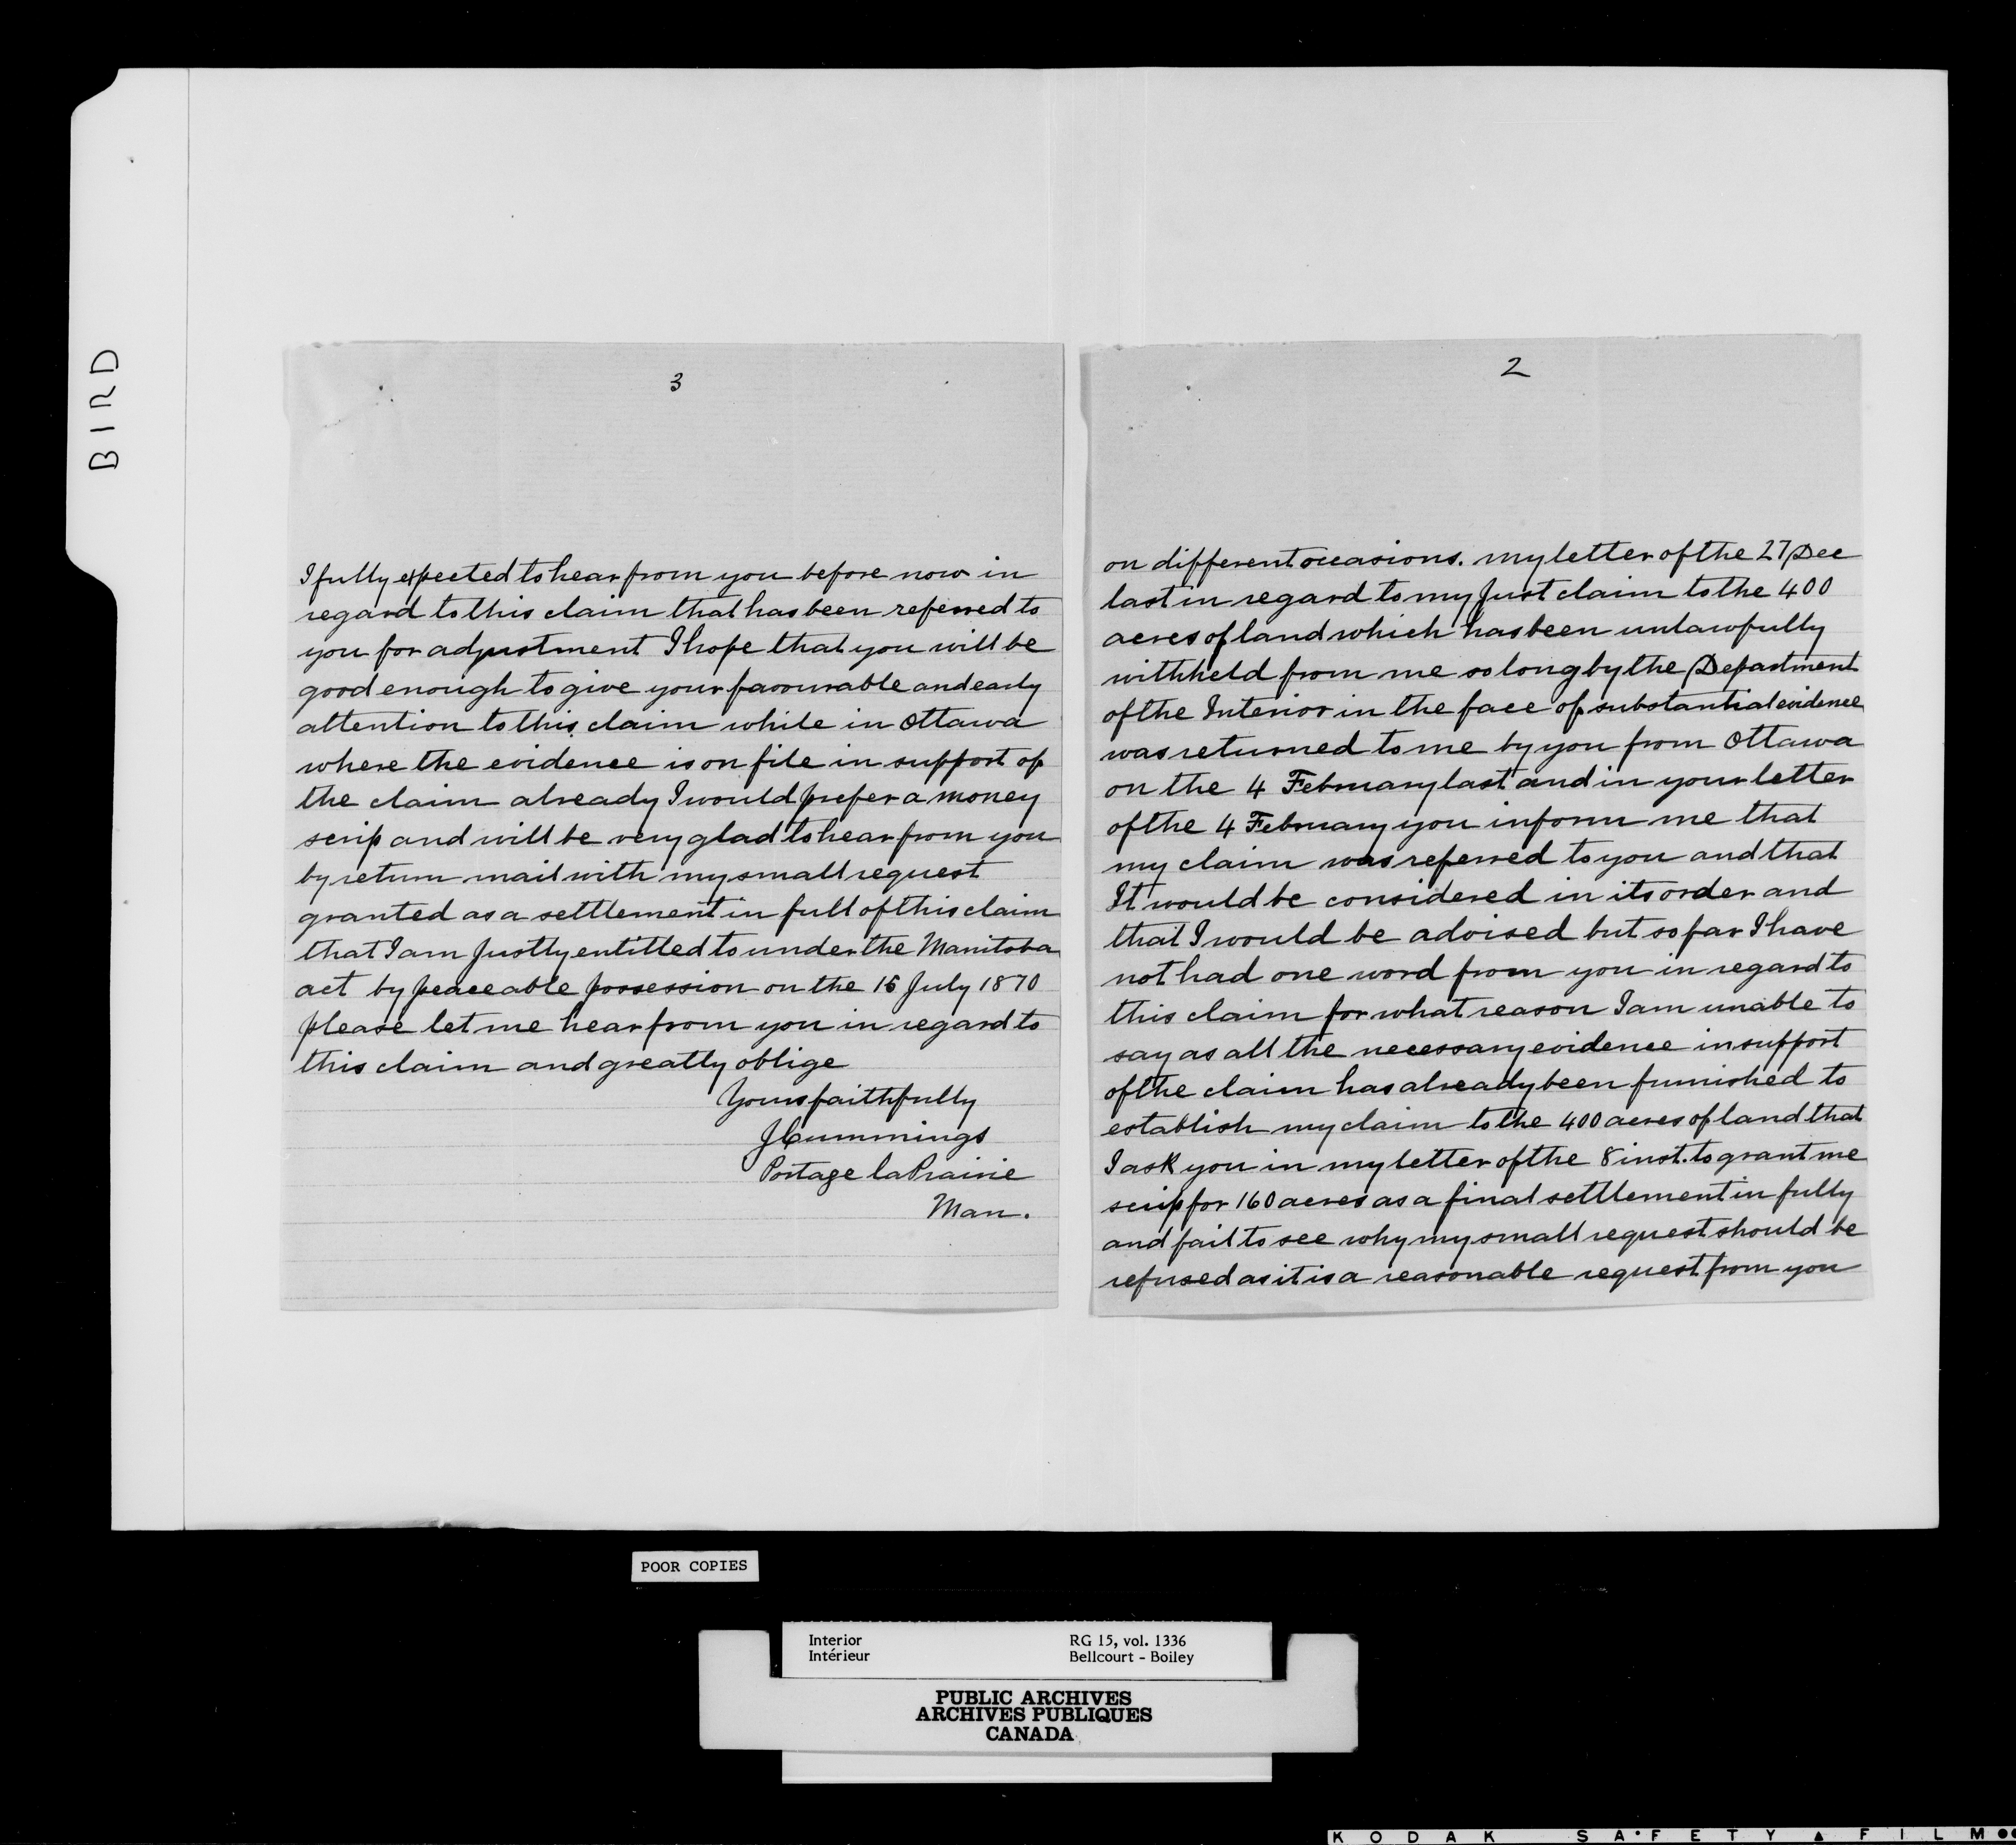 BIRD
3
I fully expected to hear from you before now in
regard to this claim that has been referred to
you for adjustment I hope that you will be
good enough to give your favourable and early
attention to this claim while in Ottawa
where the evidence is on file in support of
the claim already I would prefer a money
scrip and will be very glad to hear from you
by return mail with my small request
granted as a settlement in full of this claim
that I am Justly entitled to under the Manitoba
act by peaceable possession on the 15 July 1870
please let me hear from you in regard to
this claim and greatly oblige
Yours faithfully
J Cummings
Portage la Prairie
Man.
2
on different occasions. my letter of the 27 Dec
last in regard to my Just claim to the 400
acres of land which has been unlawfully
withheld from me so long by the Department
of the Interior in the face of substantial evidence
was returned to me by you from Ottawa
on the 4 February last and in your letter
of the 4 February you inform me that
my claim was referred to you and that
It would be considered in its order and
that I would be advised but so far I have
not had one word from you in regard to
this claim for what reason I am unable to
say as all the necessary evidence in support
of the claim has already been furnished to
establish my claim to the 400 acres of land that
I ask you in my letter of the 8 inst. to grant me
scrip for 160 acres as a final settlement in fully
and fail to see why my small request should be
refused as it is a reasonable request from you
POOR COPIES
Interior RG 15, vol. 1336
Intérieur Bellcourt - Boiley
PUBLIC ARCHIVES
ARCHIVES PUBLIQUES
CANADA
KODAK SAFETY FILM